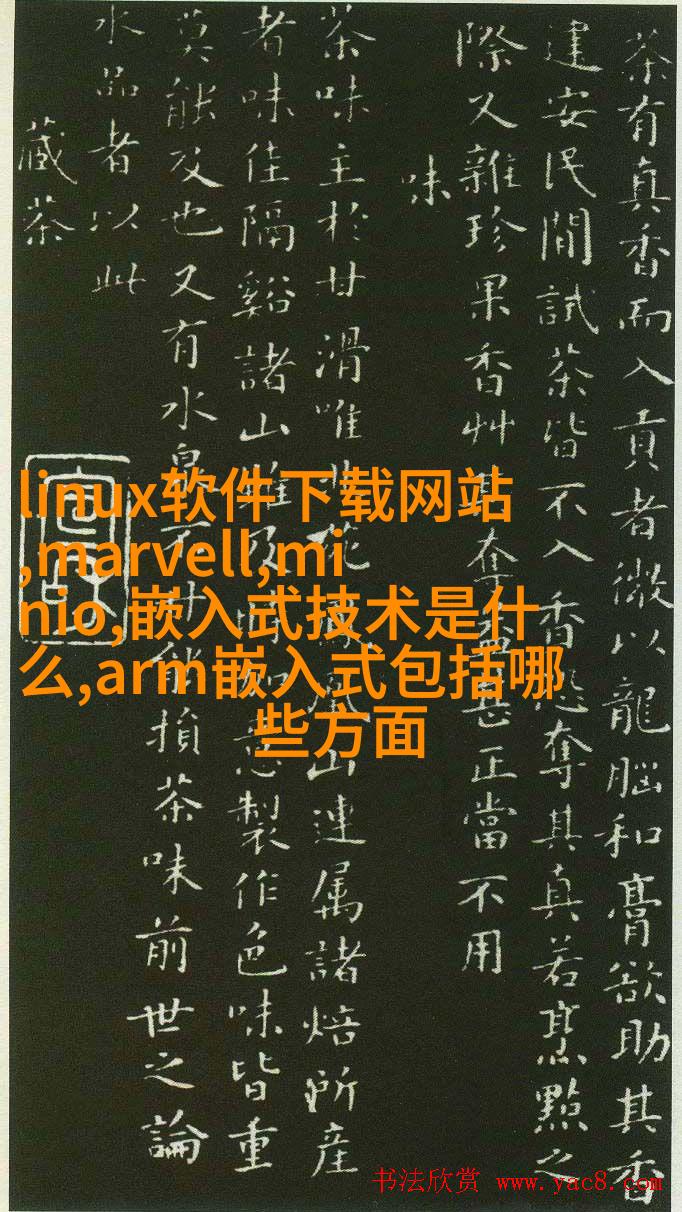 茶有真香而入貢者微以龍腦和膏欲助其香
建安民間試茶皆不入香恐奪其真若烹點之
際又雜珍果香艸其奪益甚正當不用
味
茶味主於甘滑唯北苑鳳凰山連属諸焙所産
者味佳隔谿諸山雖及時加意製作色味皆重
莫能及也又有水泉不甘能損茶味前世之論
水品者以此
藏茶
linux软件下载网站
,marvell,mi
nio,嵌入式技术是什
么,arm嵌入式包括哪
些方面
书法欣赏 www.yac8.com